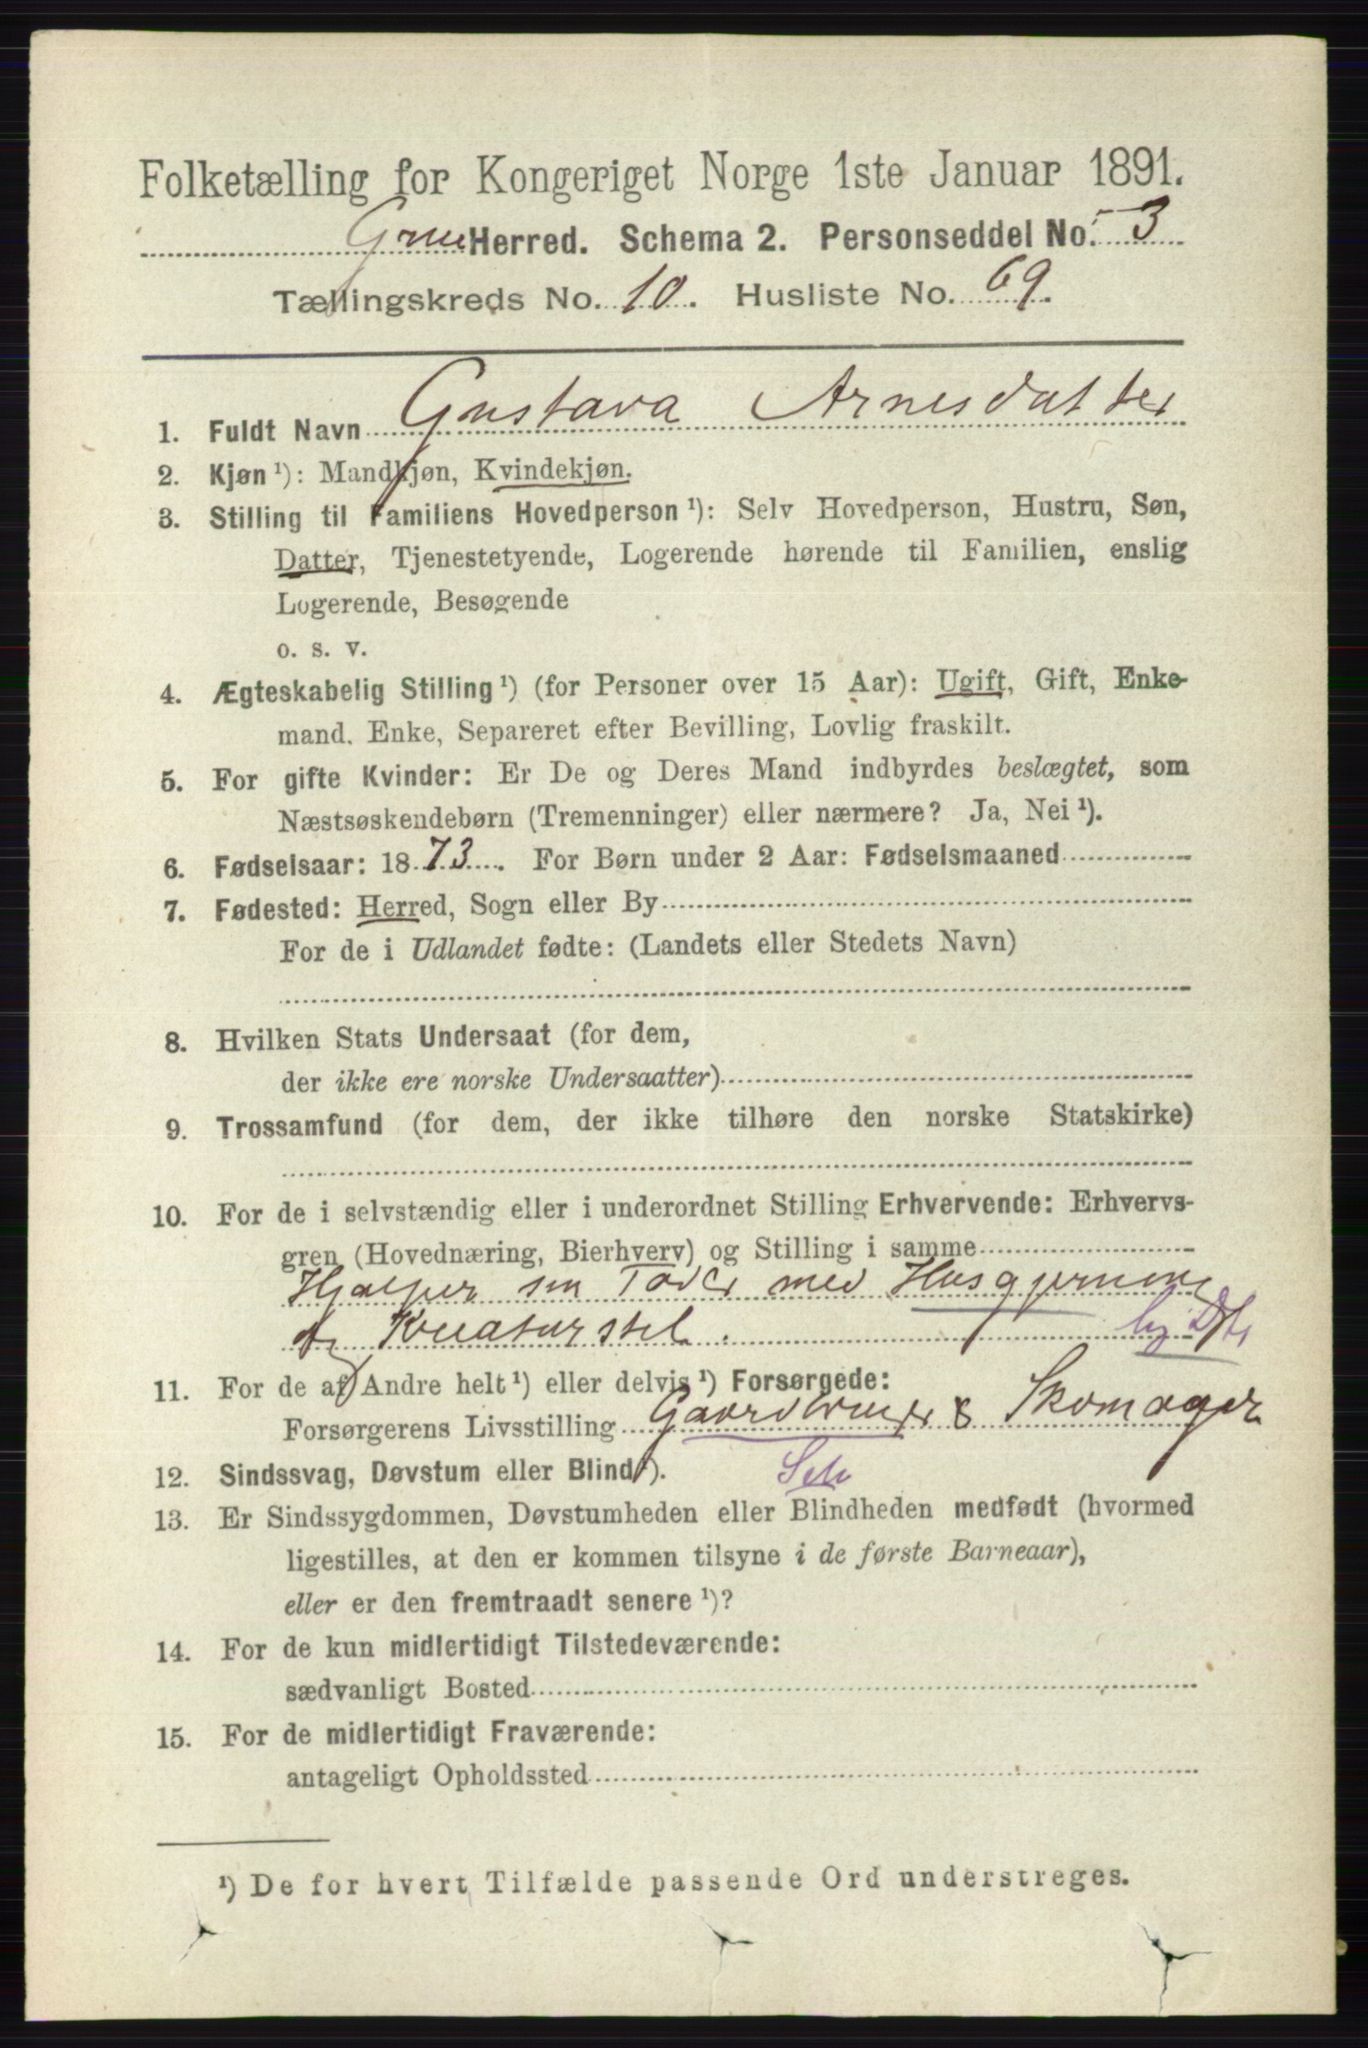 Folketælling for Kongeriget Norge 1ste Januar 1891.
Grue Herred. Schema 2. Personseddel No. 3
Tællingskreds No. 10. Husliste No. 69.
1. Fuldt Navn Gustava Arnesdatter
2. Kjøn ¹): Mandkjøn, Kvindekjøn.
3. Stilling til Familiens Hovedperson ¹): Selv Hovedperson, Hustru, Søn,
Datter, Tjenestetyende, Logerende hørende til Familien, enslig
Logerende, Besøgende
o. s. v.
4. Ægteskabelig Stilling ¹) (for Personer over 15 Aar): Ugift, Gift, Enke-
mand, Enke, Separeret efter Bevilling, Lovlig fraskilt.
5. For gifte Kvinder: Er De og Deres Mand indbyrdes beslægtet, som
Næstsøskendebørn (Tremenninger) eller nærmere? Ja, Nei ¹).
6. Fødselsaar: 1873. For Børn under 2 Aar: Fødselsmaaned
7. Fødested: Herred, Sogn eller By
For de i Udlandet fødte: (Landets eller Stedets Navn)
8. Hvilken Stats Undersaat (for dem,
der ikke ere norske Undersaatter)
9. Trossamfund (for dem, der ikke tilhøre den norske Statskirke)
10. For de i selvstændig eller i underordnet Stilling Erhvervende: Erhvervs-
gren (Hovednæring, Bierhverv) og Stilling i samme
Hjælper sin Fader med Husgjerning
og Kreaturstel.
11. For de af Andre helt ¹) eller delvis ¹) Forsørgede:
Forsørgerens Livsstilling Gaardbruger & Skomager
12. Sindssvag, Døvstum eller Blind ¹). Selv
13. Er Sindssygdommen, Døvstumheden eller Blindheden medfødt (hvormed
ligestilles, at den er kommen tilsyne i de første Barneaar),
eller er den fremtraadt senere ¹)?
14. For de kun midlertidigt Tilstedeværende:
sædvanligt Bosted
15. For de midlertidigt Fraværende:
antageligt Opholdssted
¹) De for hvert Tilfælde passende Ord understreges.